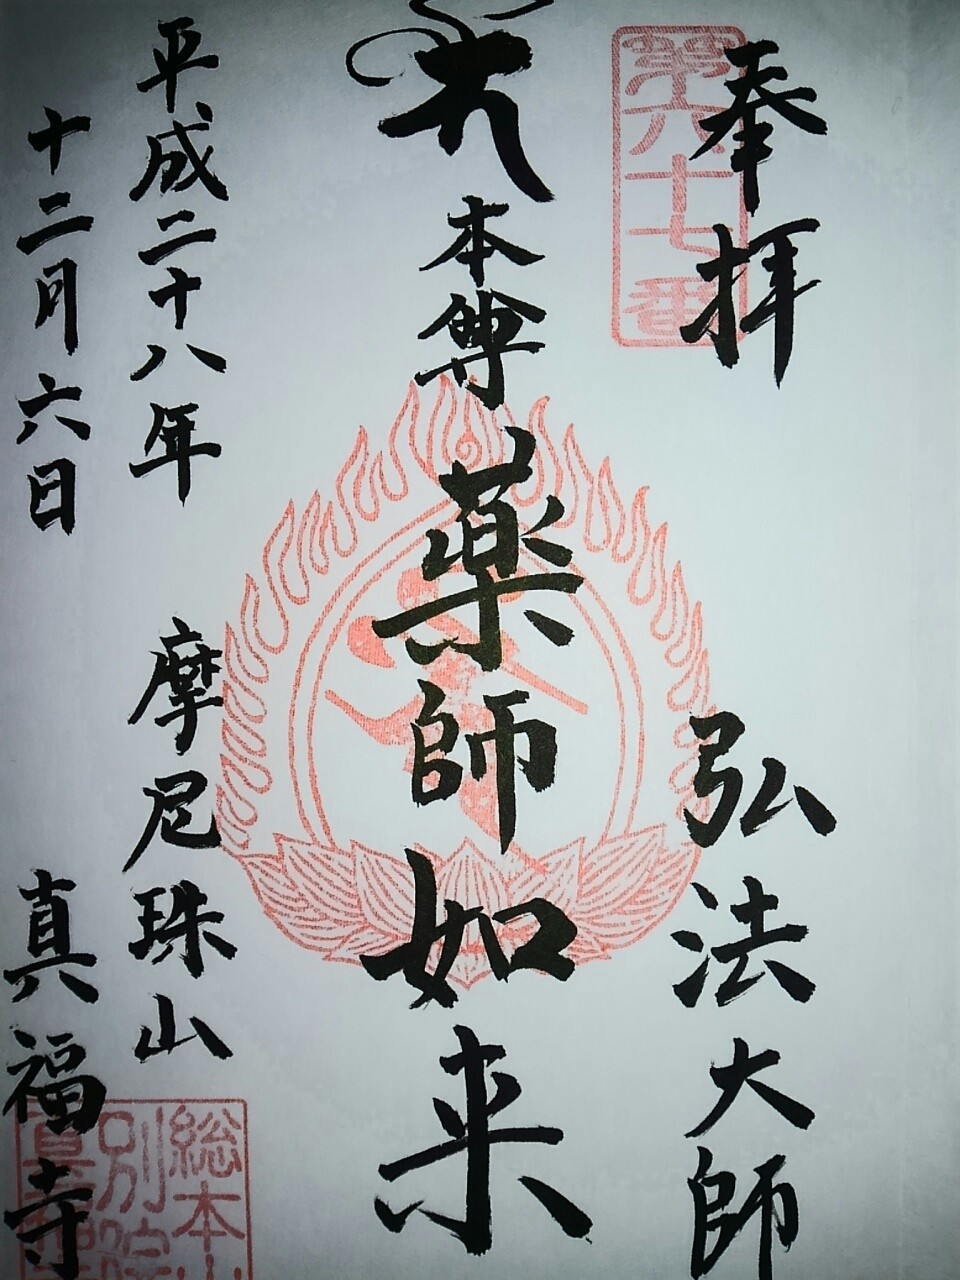 奉拝
第六十七番
弘法大師
本尊
薬師如来
平成二十八年
十二月六日
摩尼珠山
真福寺
総本山
別院